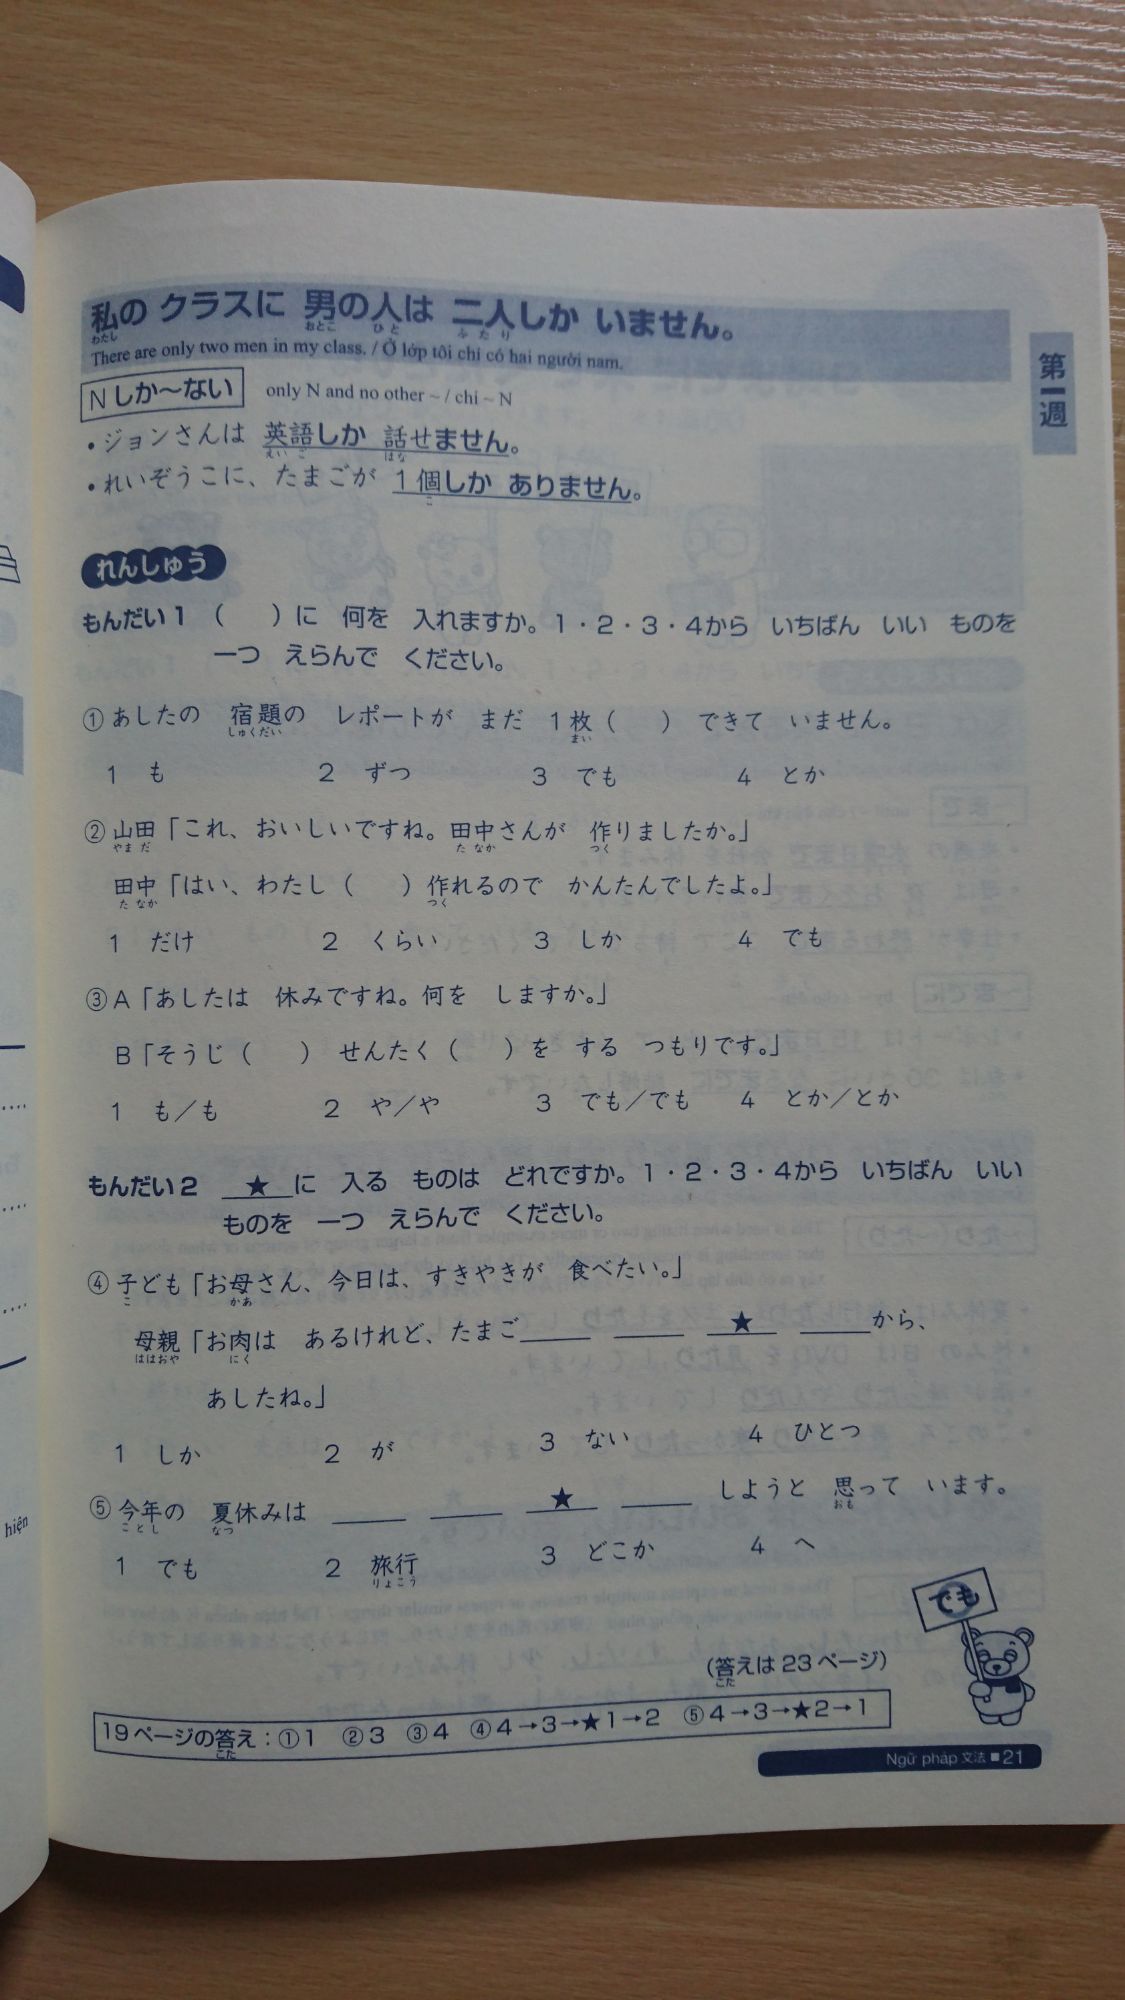 私の クラスに 男の人は 二人しか いません。
わたし おとこ ひと ふたり
There are only two men in my class. / Ở lớp tôi chỉ có hai người nam.
N しか～ない only N and no other ~ / chỉ ~ N
・ジョンさんは 英語しか 話せません。
えいご はな
・れいぞうこに、たまごが 1個しか ありません。
こ
第一週
れんしゅう
もんだい1 （ ）に 何を 入れますか。1・2・3・4から いちばん いい ものを
一つ えらんで ください。
①あしたの 宿題の レポートが まだ 1枚（ ） できて いません。
しゅくだい まい
1 も 2 ずつ 3 でも 4 とか
②山田「これ、おいしいですね。田中さんが 作りましたか。」
やまだ たなか つく
田中「はい、わたし（ ）作れるので かんたんでしたよ。」
たなか つく
1 だけ 2 くらい 3 しか 4 でも
③A「あしたは 休みですね。何を しますか。」
B「そうじ（ ） せんたく（ ）を する つもりです。」
1 も／も 2 や／や 3 でも／でも 4 とか／とか
もんだい2 ＿★＿に 入る ものは どれですか。1・2・3・4から いちばん いい
ものを 一つ えらんで ください。
④子ども「お母さん、今日は、すきやきが 食べたい。」
こ かあ
母親「お肉は あるけれど、たまご＿＿＿ ＿＿＿ ＿★＿ ＿＿＿から、
ははおや にく
あしたね。」
1 しか 2 が 3 ない 4 ひとつ
⑤今年の 夏休みは ＿＿＿ ＿＿＿ ＿★＿ ＿＿＿ しようと 思って います。
ことし なつ おも
1 でも 2 旅行 3 どこか 4 へ
りょこう
でも
（答えは23ページ）
こた
19ページの答え：①1 ②3 ③4 ④4→3→★1→2 ⑤4→3→★2→1
こた
Ngữ pháp 文法 ■ 21
hiện